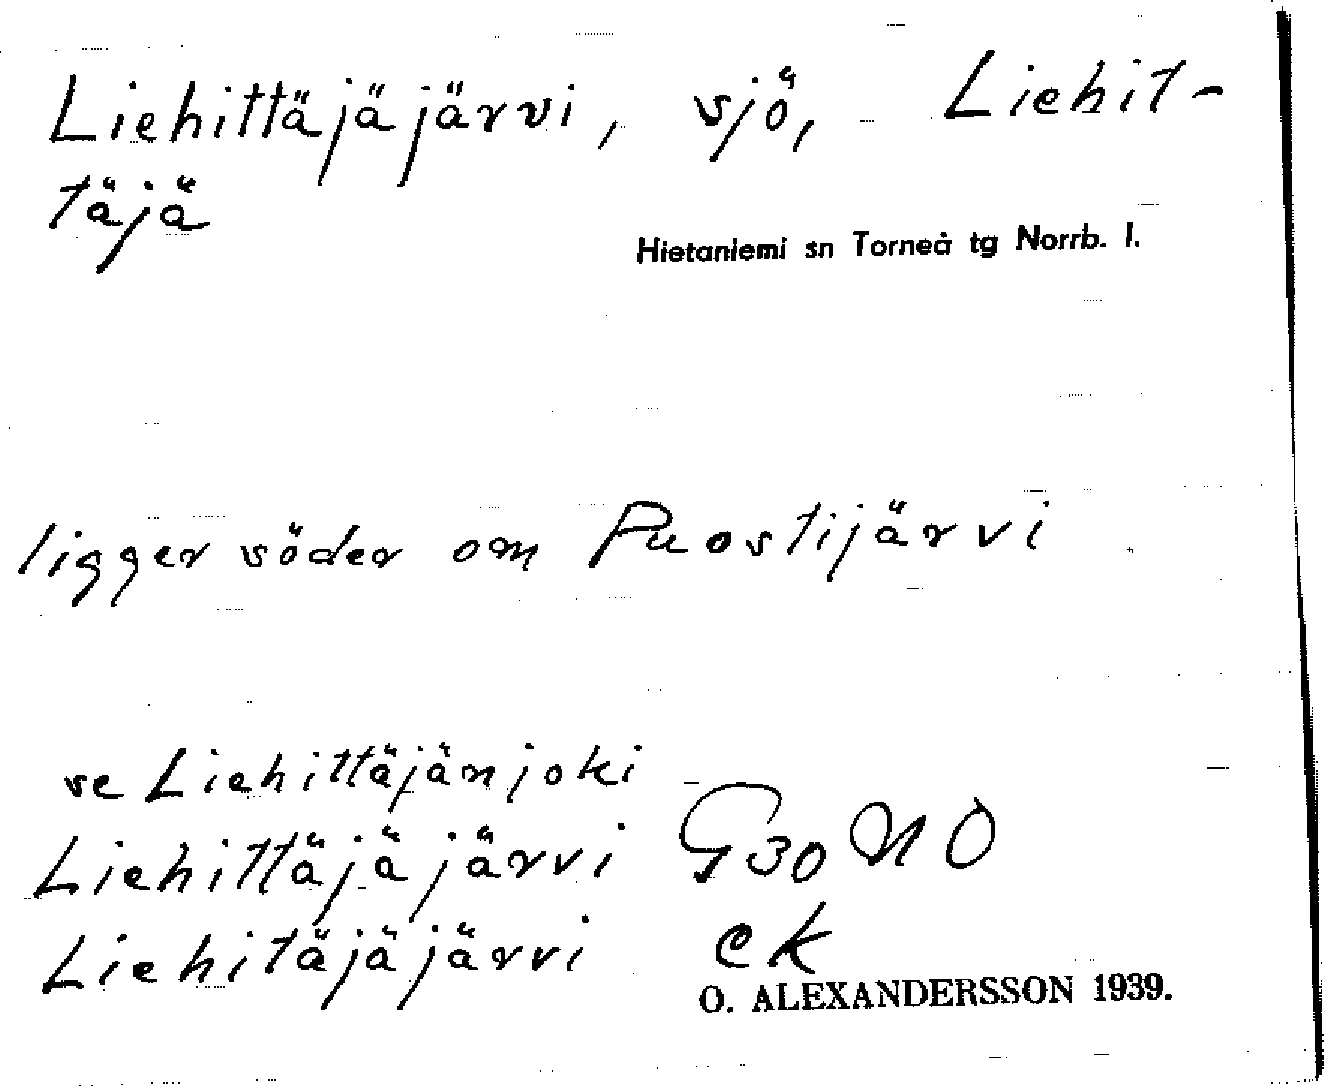 Liehittäjäjärvi, sjö, Liehit-
täjä
Hietaniemi sn Torneå tg Norrb. l.
ligger söder om Puostijärvi
se Liehittäjänjoki
Liehittäjäjärvi G30 NO
Liehitäjäjärvi ek
O. ALEXANDERSSON 1939.